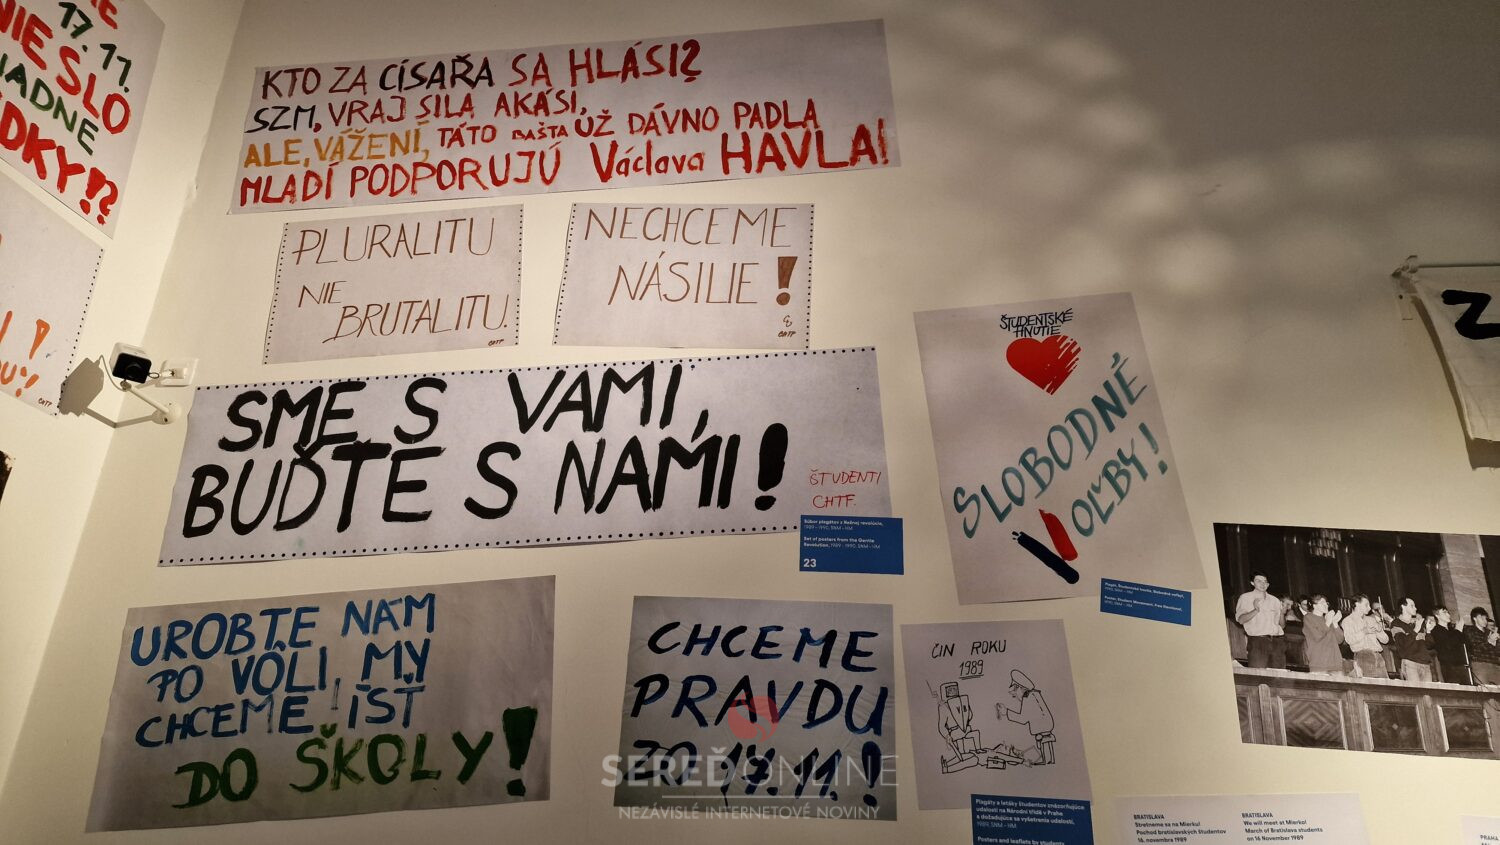 17.11.
NIE SLO
ŽIADNE
KTO ZA CÍSAŘA SA HLÁSI?
SZM, VRAJ SILA AKÁSI,
ALE, VÁŽENÍ, TÁTO BAŠTA UŽ DÁVNO PADLA
MLADÍ PODPORUJÚ Václava HAVLA!
PLURALITU
NIE
BRUTALITU.
CHTF
NECHCEME
NÁSILIE!
CHTF
ŠTUDENTSKÉ
HNUTIE
SLOBODNÉ
VOĽBY!
SME S VAMI,
BUĎTE S NAMI!
ŠTUDENTI
CHTF.
Súbor plagátov z Nežnej revolúcie,
1989 – 1990, SNM – HM
Set of posters from the Gentle
Revolution, 1989 – 1990, SNM – HM
23
Plagát, Študentské hnutie, Slobodné voľby!,
1990, SNM – HM
Poster, Student Movement, Free Elections!,
1990, SNM – HM
UROBTE NÁM
PO VÔLI, MY
CHCEME ÍSŤ
DO ŠKOLY!
CHCEME
PRAVDU
ZO 17.11.!
ČIN ROKU
1989
VB
SEREĎ ONLINE
NEZÁVISLÉ INTERNETOVÉ NOVINY
Plagáty a letáky študentov znázorňujúce
udalosti na Národní třídě v Prahe
a dožadujúce sa vyšetrenia udalostí,
1989, SNM – HM
Posters and leaflets by students
BRATISLAVA
Stretneme sa na Mierku!
Pochod bratislavských študentov
16. novembra 1989
BRATISLAVA
We will meet at Mierko!
March of Bratislava students
on 16 November 1989
PRAHA